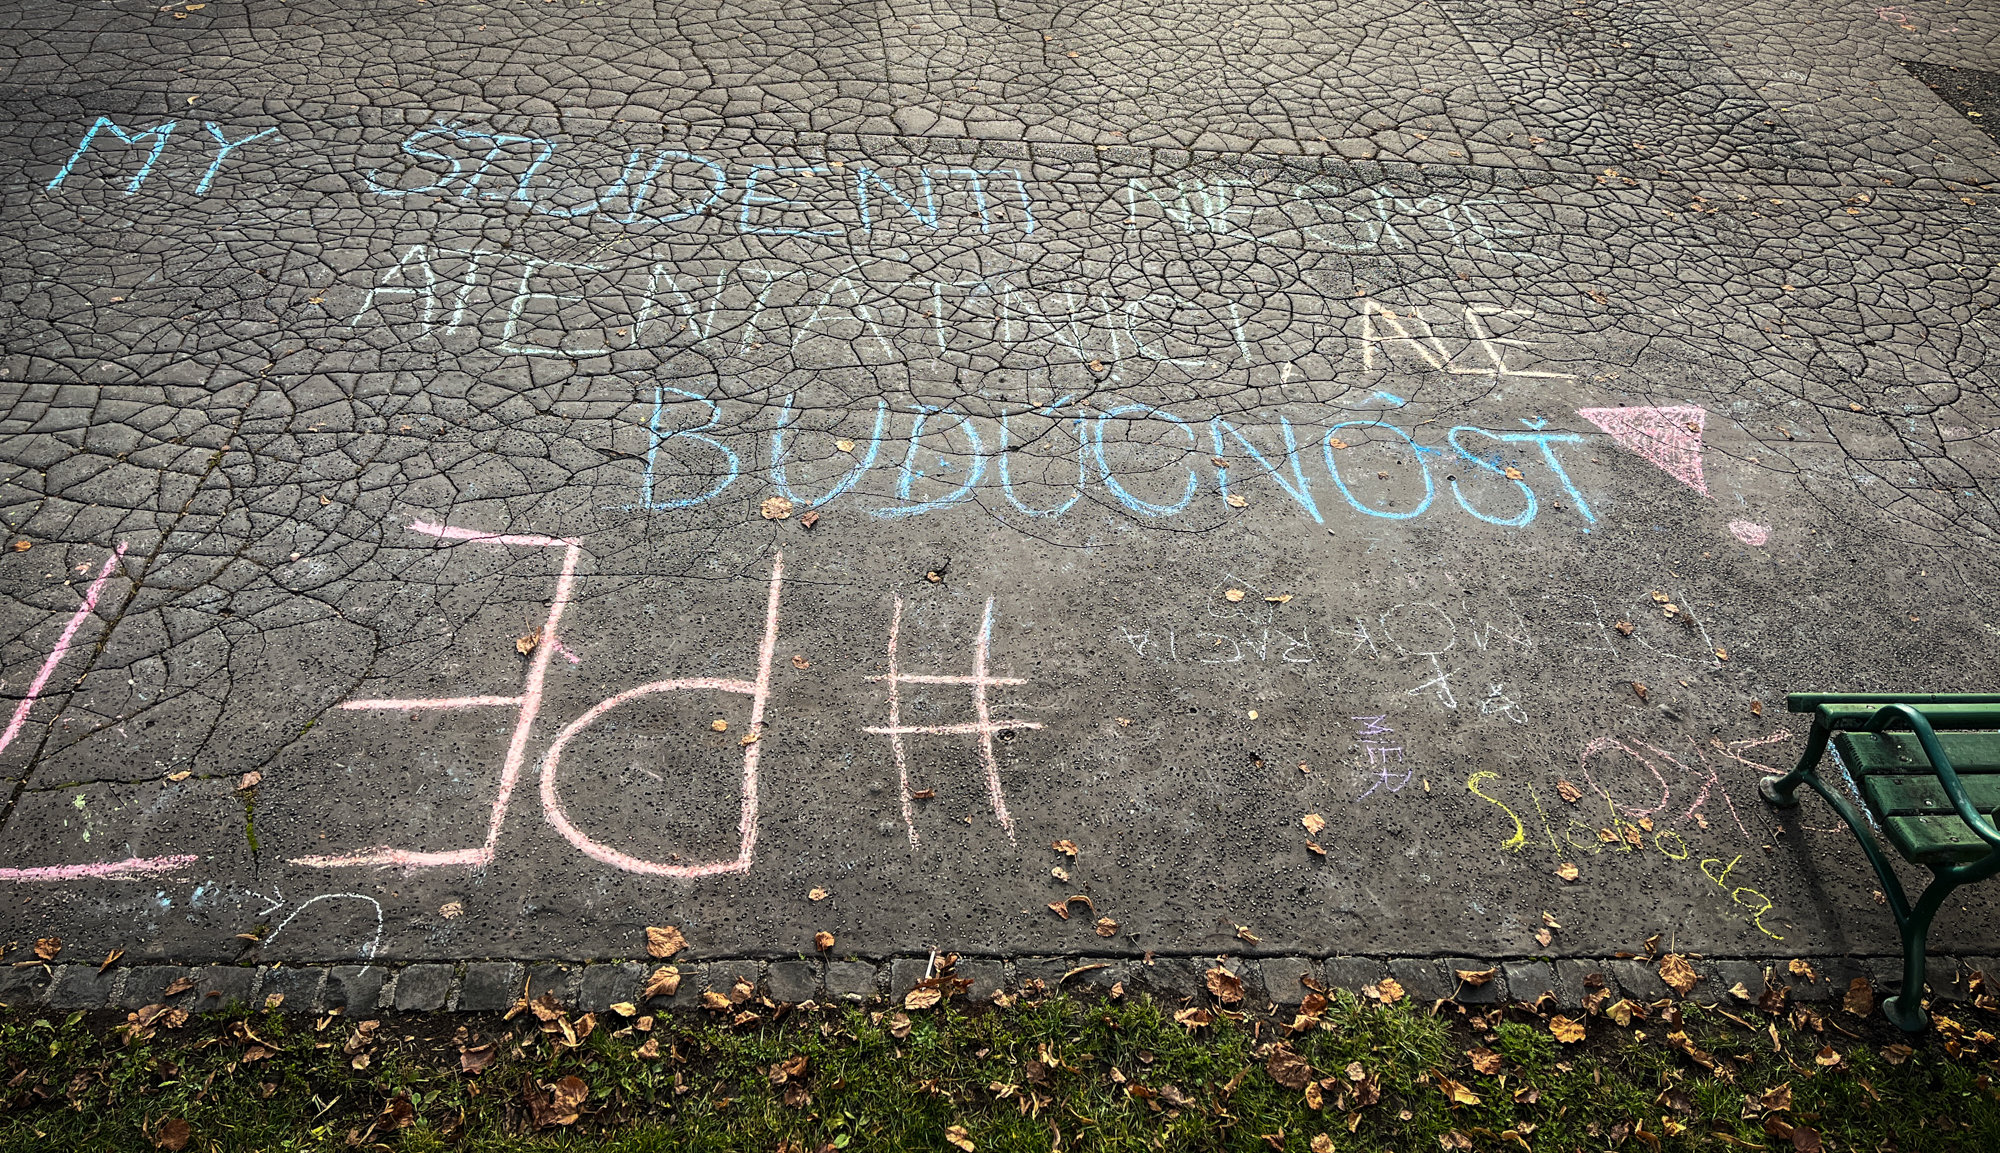 MY ŠTUDENTI NIE SME
ATENTÁTNICI, ALE
BUDÚCNÔSŤ!
#PE
DEMOKRACIA
MER
Sloboda